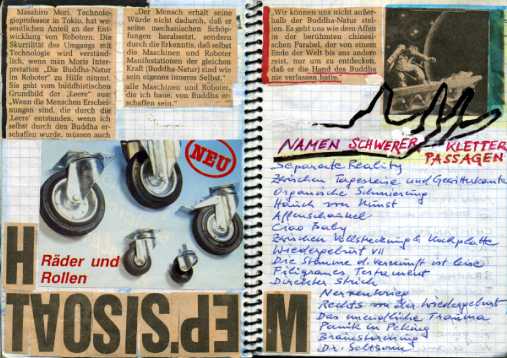 Masahiro Mori, Technologie-
professor in Tokio, hat we-
sentlichen Anteil an der Ent-
wicklung von Robotern. Die
Skurrilität des Umgangs mit
Technologie wird verständ-
lich, wenn man Moris Inter-
pretation „Die Buddha-Natur
im Roboter" zu Hilfe nimmt.
Sie geht vom buddhistischen
Grundbild der „Leere" aus:
„Wenn die Menschen Erschei-
nungen sind, die durch die
‚Leere' entstanden, wenn ich
selbst durch den Buddha er-
schaffen wurde, müssen auch
„Der Mensch erhält seine
Würde nicht dadurch, daß er
seine mechanischen Schöp-
fungen herabsetzt, sondern
durch die Erkenntnis, daß selbst
die Maschinen und Roboter
Manifestationen der gleichen
Kraft (Buddha-Natur) sind wie
sein eigenes inneres Selbst."
alle Maschinen und Roboter,
die ich baue, von Buddha er-
schaffen sein."
NEU
H
Räder und
Rollen
„Wir können uns nicht außer-
halb der Buddha-Natur stel-
len. Es geht uns wie dem Affen
in der berühmten chinesi-
schen Parabel, der von einem
Ende der Welt bis ans andere
reist, nur um zu entdecken,
daß er die Hand des Buddha
nie verlassen hatte."
NAMEN SCHWERER KLETTER
PASSAGEN
Separate Reality
Zwischen Tagesreise und Gewitterkante
Organische Schmierung
Hauch von Kunst
Affenschaukel
Ciao Baby
Zwischen Vollsteckung & Kochplatte
Wiedergeburt VII
Die Stimme d. Vernunft ist leise
Filigranes Testament
Direkter Strich
Nervenkrieg
Rechts von der Wiedergeburt
Das unendliche Trauma
Panik in Peking
Dr. Seltsam
M